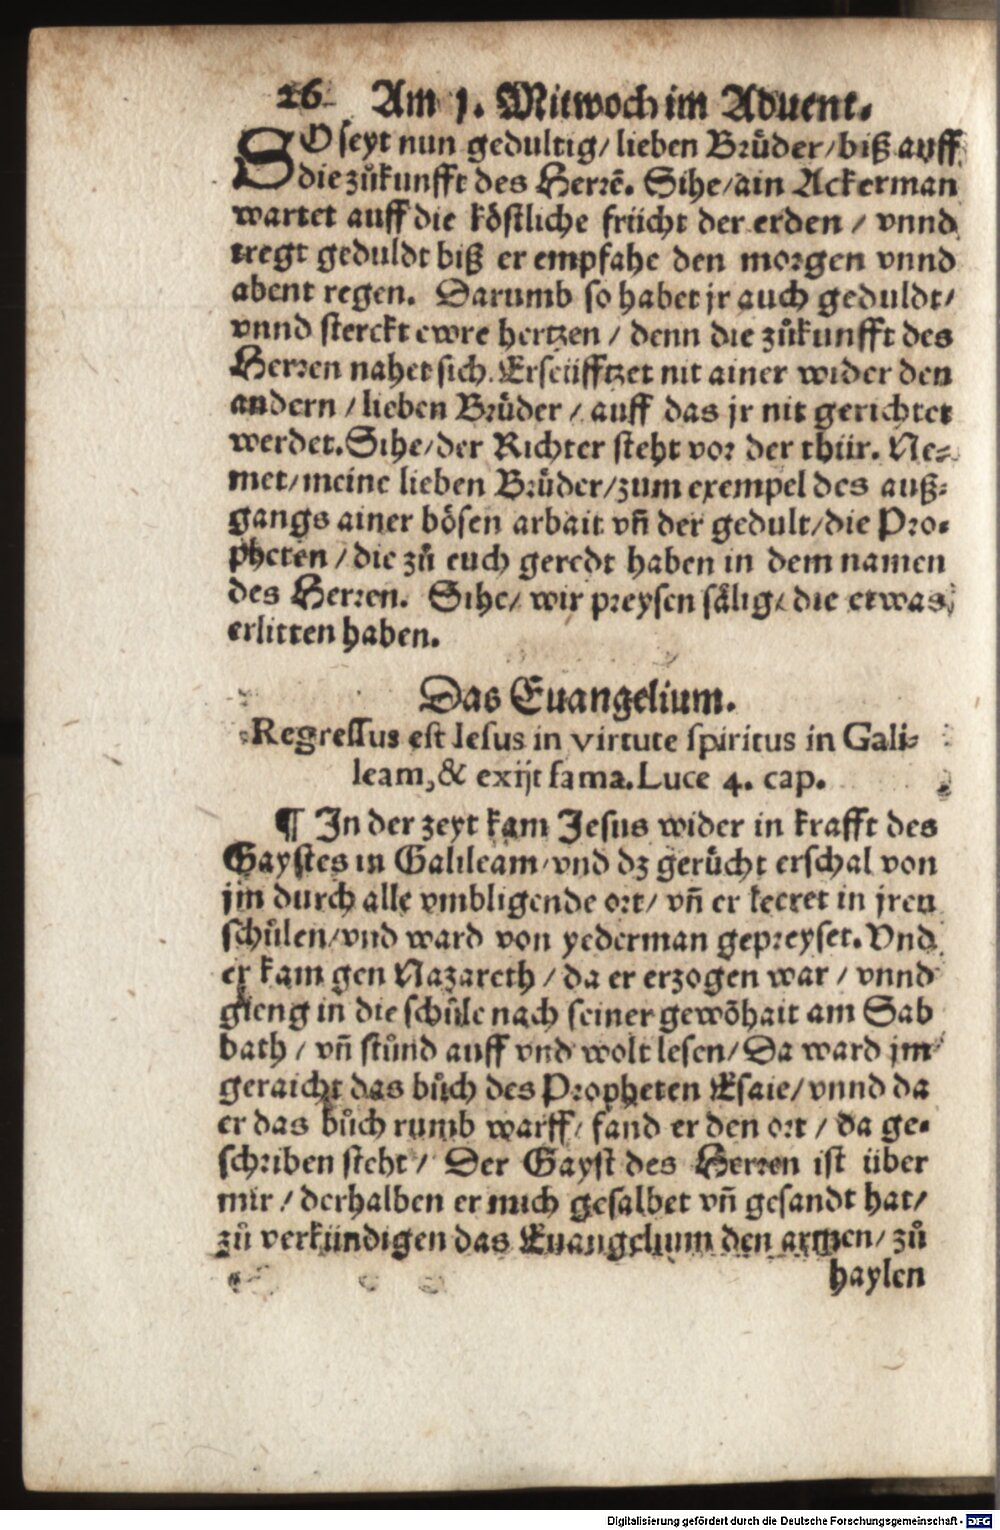 26 Am 1. Mitwoch im Aduent.
SO seyt nun gedultig/ lieben Bruͤder/ biß auff
die zuͤkunfft des Herrē. Sihe/ ain Ackerman
wartet auff die koͤstliche fruͤcht der erden / vnnd
tregt geduldt biß er empfahe den morgen vnnd
abent regen. Darumb so habet jr auch geduldt/
vnnd sterckt ewre hertzen / denn die zuͦkunfft des
Herren nahet sich. Erseüfftzet nit ainer wider den
andern / lieben Bruͤder / auff das jr nit gerichtet
werdet. Sihe/ der Richter steht vor der thür. Ne-
met/ meine lieben Bruͤder/ zum exempel des auß-
gangs ainer boͤsen arbait vñ der gedult/ die Pro-
pheten / die zuͦ euch geredt haben in dem namen
des Herren. Sihe/ wir preysen saͤlig/ die etwas
erlitten haben.
Das Euangelium.
Regressus est Iesus in virtute spiritus in Gali-
leam, & exijt fama. Luce 4. cap.
¶ In der zeyt kam Jesus wider in krafft des
Gaystes in Galileam/ vnd dz geruͤcht erschal von
jm durch alle vmbligende ort/ vñ er leeret in jren
schuͦlen/ vnd ward von yederman gepreyset. Vnd
er kam gen Nazareth / da er erzogen war / vnnd
gieng in die schuͦle nach seiner gewōhait am Sab
bath / vñ stuͦnd auff vnd wolt lesen/ Da ward jm
geraicht das buͦch des Propheten Esaie/ vnnd da
er das buͦch rumb warff/ fand er den ort / da ge-
schriben steht / Der Gayst des Herren ist über
mir / derhalben er mich gesalbet vñ gesandt hat/
zuͦ verkündigen das Euangelium den armen/ zuͦ
haylen
Digitalisierung gefördert durch die Deutsche Forschungsgemeinschaft - DFG